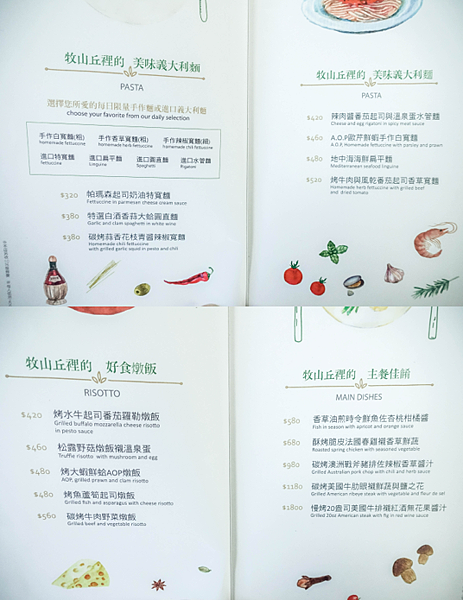 牧山丘裡的 美味義大利麵
PASTA
選擇您所愛的每日限量手作麵或進口義大利麵
choose your favorite from our daily selection
手作白寬麵(粗)
homemade fettuccine
手作香草寬麵(粗)
homemade herb fettuccine
手作辣椒寬麵(細)
homemade chili fettuccine
進口特寬麵
fettuccine
進口扁平麵
linguine
進口圓直麵
Spaghetti
進口水管麵
Rigatoni
$320 帕瑪森起司奶油特寬麵
Fettuccine in parmesan cheese cream sauce
$380 特選白酒香蒜大蛤圓直麵
Garlic and clam spaghetti in white wine
$380 碳烤蒜香花枝青醬辣椒寬麵
Homemade chili fettuccine
with grilled garlic squid in pesto and chili
牧山丘裡的 美味義大利麵
PASTA
$420 辣肉醬番茄起司與溫泉蛋水管麵
Cheese and egg rigatoni in spicy meat sauce
$460 A.O.P歐芹鮮蝦手作白寬麵
A.O.P. Homemade fettuccine with parsley and prawn
$480 地中海海鮮扁平麵
Mediterranean seafood linguine
$520 烤牛肉與風乾番茄起司香草寬麵
Homemade herb fettuccine with grilled beef
and dried tomato
牧山丘裡的 好食燉飯
RISOTTO
$420 烤水牛起司番茄羅勒燉飯
Grilled buffalo mozzarella cheese risotto
in pesto sauce
$460 松露野菇燉飯襯溫泉蛋
Truffle risotto with mushroom and egg
$480 烤大蝦鮮蛤AOP燉飯
AOP, grilled prawn and clam risotto
$480 烤魚蘆筍起司燉飯
Grilled fish and asparagus with cheese risotto
$560 碳烤牛肉野菜燉飯
Grilled beef and vegetable risotto
牧山丘裡的 主餐佳餚
MAIN DISHES
$580 香草油煎時令鮮魚佐杏桃柑橘醬
Fish in season with apricot and orange sauce
$680 酥烤脆皮法國春雞襯香草鮮蔬
Roasted spring chicken with seasoned vegetable
$980 碳烤澳洲戰斧豬排佐辣椒香草醬汁
Grilled Australian pork chop with chili and herb sauce
$1180 碳烤美國牛肋眼襯鮮蔬與鹽之花
Grilled American ribeye steak with vegetable and fleur de sel
$1800 慢烤20盎司美國牛排襯紅酒無花果醬汁
Grilled 20oz American steak with fig in red wine sauce